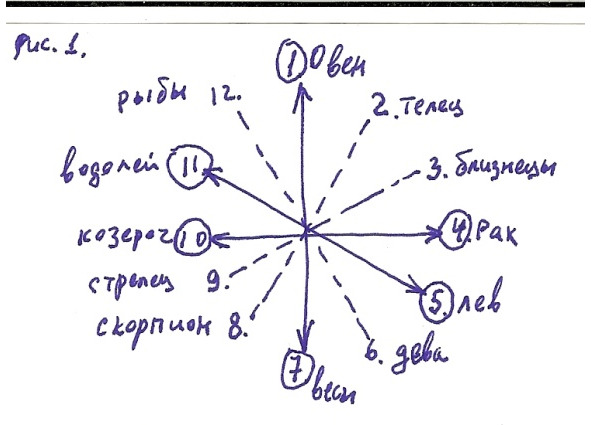 Рис. 1.
1 Овен
рыбы 12.
2. Телец
водолей 11
3. близнецы
козерог 10
4. Рак
стрелец 9.
5. лев
скорпион 8.
6. дева
7 весы